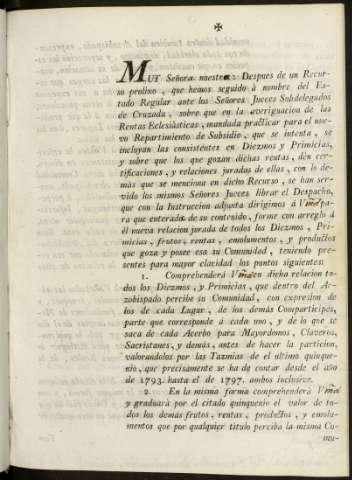 ✠
MUY Señora nuestra: Despues de un Recur-
so prolixo, que hemos seguido à nombre del Es-
tado Regular ante los Señores Jueces Subdelegados
de Cruzada, sobre que en la averiguacion de las
Rentas Eclesiásticas, mandada practicar para el nue-
vo Repartimiento de Subsidio, que se intenta, se
incluyan las consistentes en Diezmos y Primicias,
y sobre que los que gozan dichas rentas, den cer-
tificaciones, y relaciones juradas de ellas, con lo de-
màs que se menciona en dicho Recurso, se han ser-
vido los mismos Señores Jueces librar el Despacho,
que con la Instruccion adjunta dirigimos á Vmd pa-
ra que enterada de su contenido, forme con arreglo á
él nueva relacion jurada de todos los Diezmos, Pri-
micias, frutos, rentas, emolumentos, y productos
que goza y posee esa su Comunidad, teniendo pre-
sentes para mayor claridad los puntos siguientes:
1. Comprehenderá Vmd en dicha relacion to-
dos los Diezmos, y Primicias, que dentro del Ar-
zobispado percibe su Comunidad, con expresion de
los de cada Lugar, de los demás Comparticipes,
parte que corresponde á cada uno, y de lo que se
saca de cada Acerbo para Mayordomos, Claveros,
Sacristanes, y demás, antes de hacer la particion,
valorandolos por las Tazmias del ultimo quinque-
nio, que precisamente se ha de contar desde el año
de 1793. hasta el de 1797. ambos inclusive.
2. En la misma forma comprehenderá Vmd
y graduará por el citado quinquenio el valor de to-
dos los demás frutos, rentas, productos, y emolu-
mentos que por qualquier titulo perciba la misma Co-
mu-